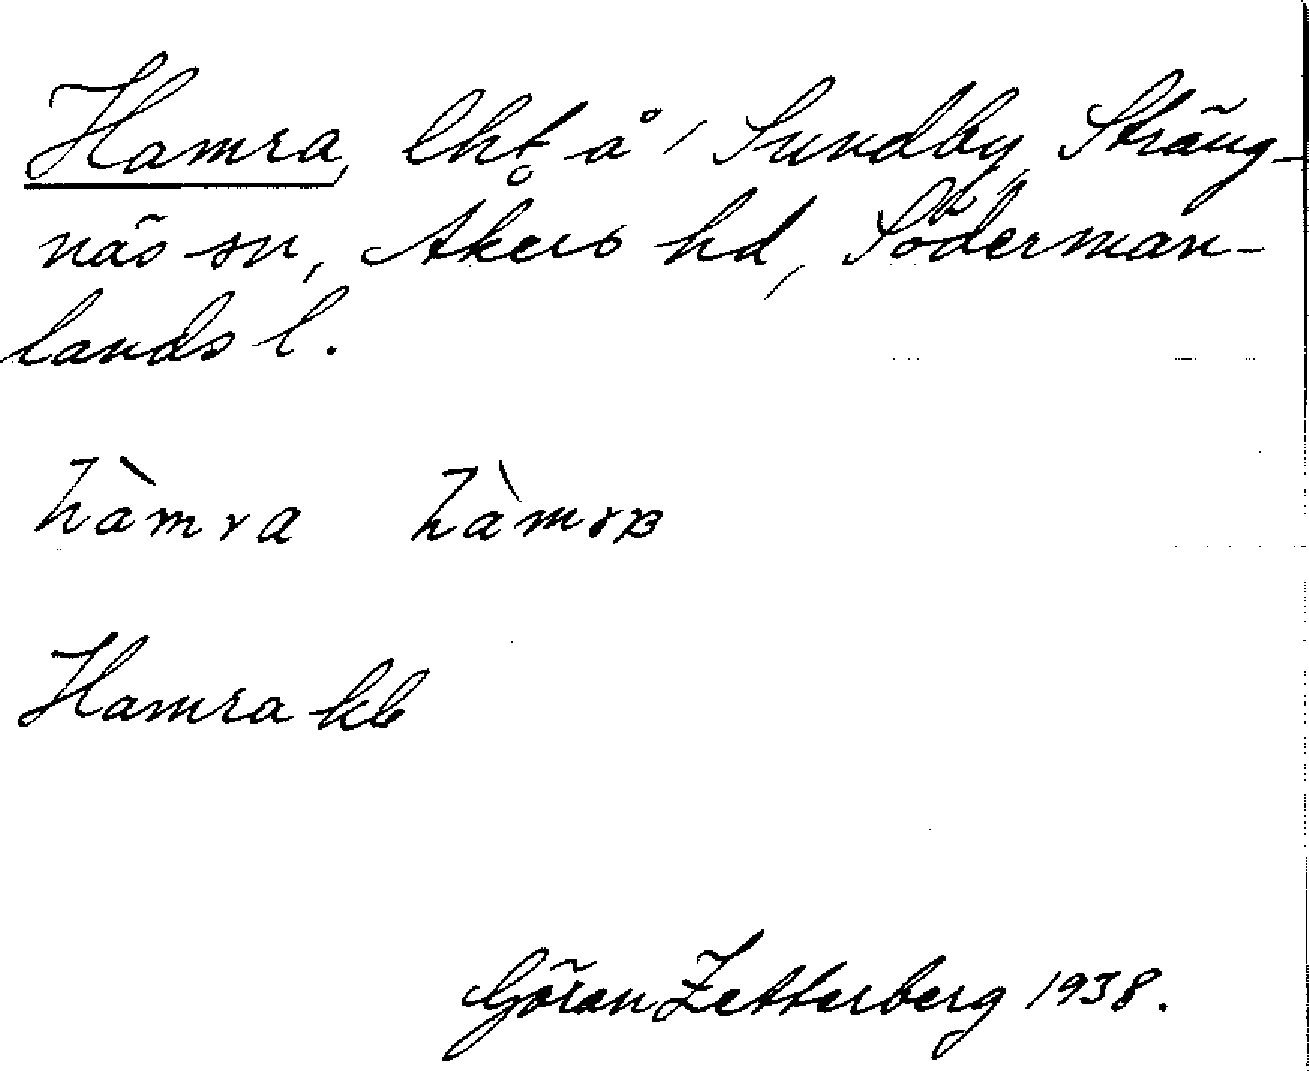 Hamra, lht å Sundby, Sträng-
näs sn, Åkers hd, Söderman-
lands l.
hàmra hàmrɒ
Hamra kb
Göran Zetterberg 1938.